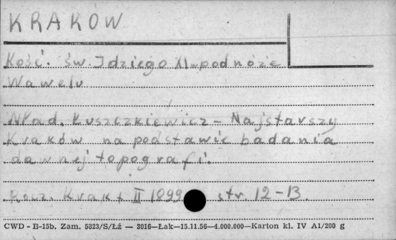 KRAKÓW
Kość. św. Idziego XI w pod nóże
Wawelu
Wład. Łuszczkiewicz - Najstarszy
Kraków na podstawie badania
dawnej topografi.
Rocz. Krak. II 1899 str. 12-13.
CWD - B-15b. Zam. 5023/S/Łź — 3016—Łak—15.11.56—4.000.000—Karton kl. IV A1/200 g